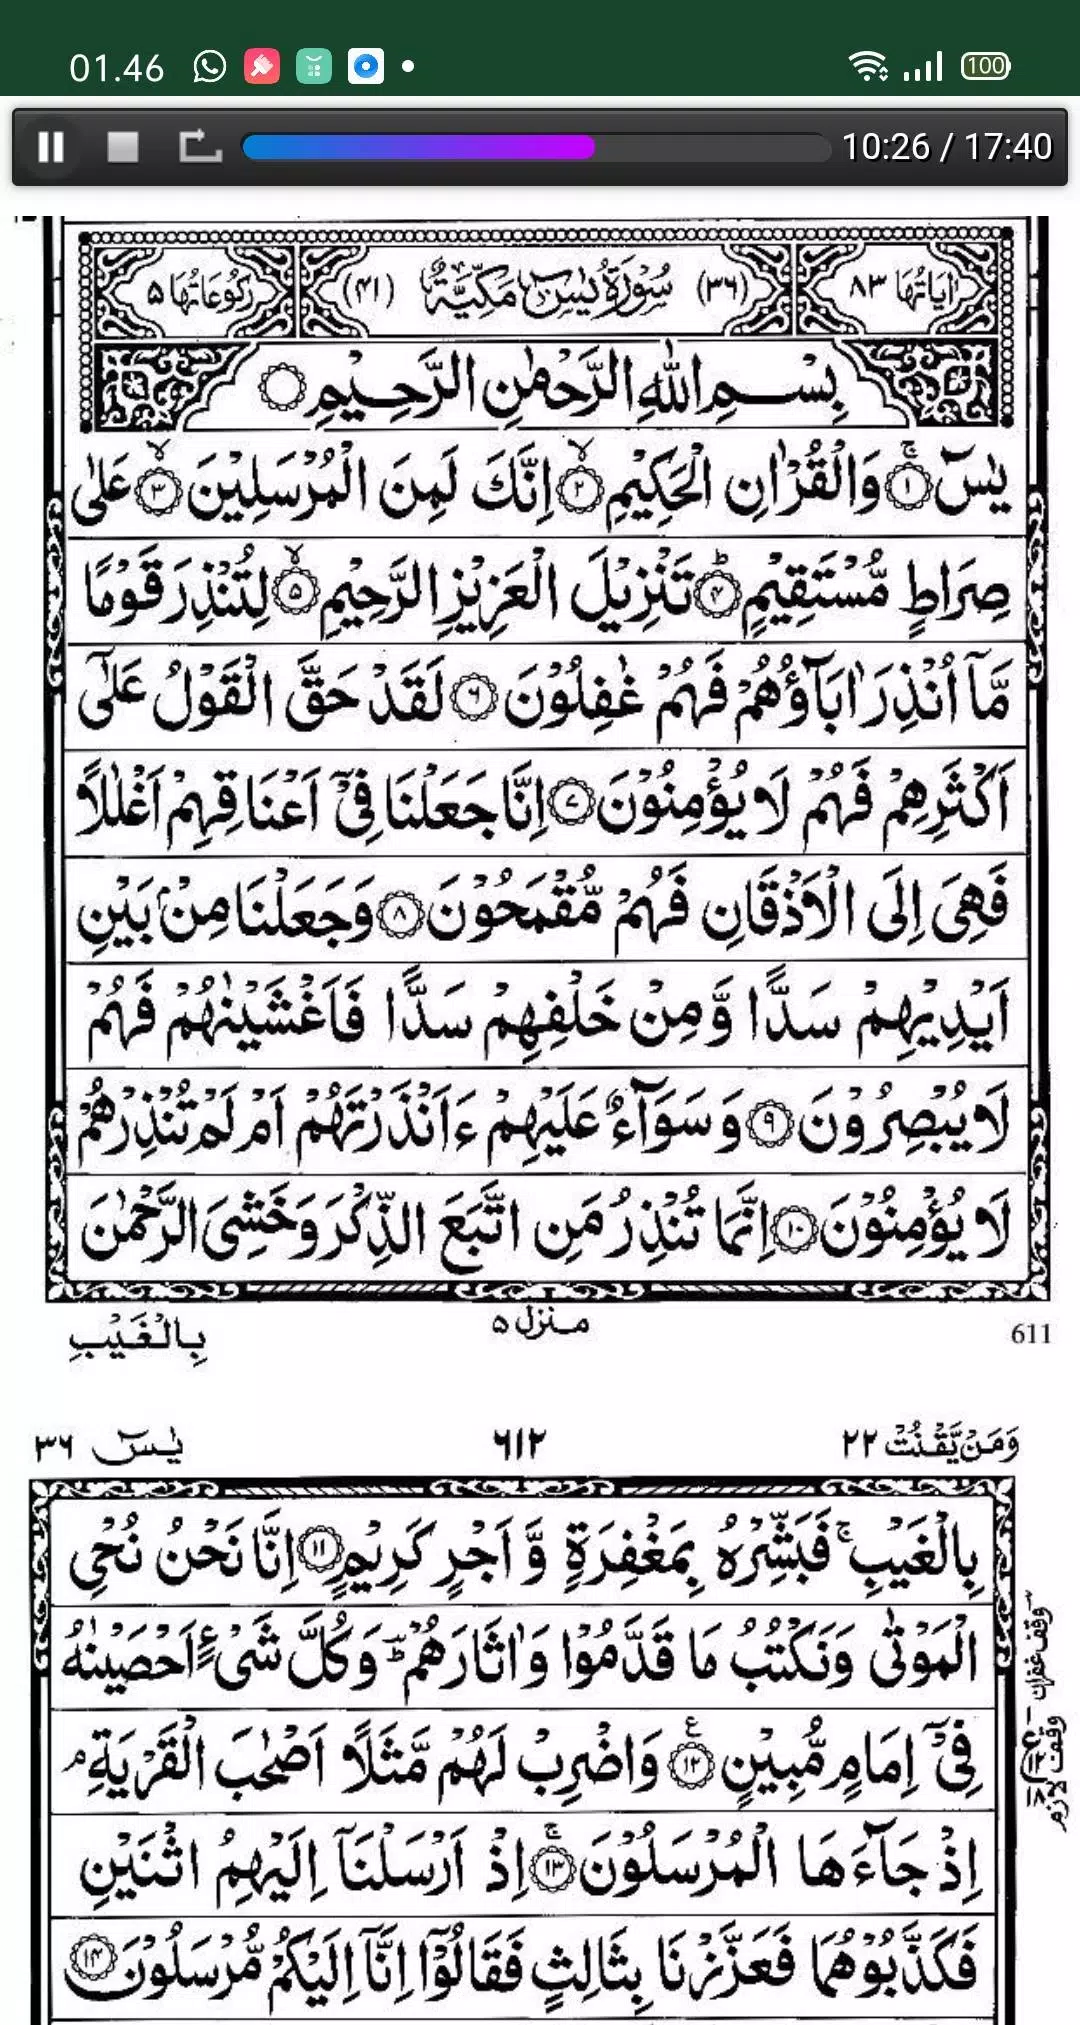 01.46
100
10:26 / 17:40
اٰيَاتُهَا ٨٣ (٣٦) سُوْرَةُ يٰسٓ مَكِّيَّةٌ (٤١) رُكُوْعَاتُهَا ٥
بِسْمِ اللّٰهِ الرَّحْمٰنِ الرَّحِيْمِ
يٰسٓ ۚ ﴿١﴾ وَالْقُرْاٰنِ الْحَكِيْمِ ۙ ﴿٢﴾ اِنَّكَ لَمِنَ الْمُرْسَلِيْنَ ۙ ﴿٣﴾ عَلٰى
صِرَاطٍ مُّسْتَقِيْمٍ ؕ ﴿٤﴾ تَنْزِيْلَ الْعَزِيْزِ الرَّحِيْمِ ۙ ﴿٥﴾ لِتُنْذِرَ قَوْمًا
مَّاۤ اُنْذِرَ اٰبَآؤُهُمْ فَهُمْ غٰفِلُوْنَ ﴿٦﴾ لَقَدْ حَقَّ الْقَوْلُ عَلٰۤى
اَكْثَرِهِمْ فَهُمْ لَا يُؤْمِنُوْنَ ﴿٧﴾ اِنَّا جَعَلْنَا فِيْۤ اَعْنَاقِهِمْ اَغْلٰلًا
فَهِيَ اِلَى الْاَذْقَانِ فَهُمْ مُّقْمَحُوْنَ ﴿٨﴾ وَجَعَلْنَا مِنْۢ بَيْنِ
اَيْدِيْهِمْ سَدًّا وَّمِنْ خَلْفِهِمْ سَدًّا فَاَغْشَيْنٰهُمْ فَهُمْ
لَا يُبْصِرُوْنَ ﴿٩﴾ وَسَوَآءٌ عَلَيْهِمْ ءَاَنْذَرْتَهُمْ اَمْ لَمْ تُنْذِرْهُمْ
لَا يُؤْمِنُوْنَ ﴿١٠﴾ اِنَّمَا تُنْذِرُ مَنِ اتَّبَعَ الذِّكْرَ وَخَشِيَ الرَّحْمٰنَ
611 منزل ٥ بِالْغَيْبِ
وَمَنْ يَّقْنُتْ ٢٢ ٦١٢ يٰسٓ ٣٦
بِالْغَيْبِ ۚ فَبَشِّرْهُ بِمَغْفِرَةٍ وَّاَجْرٍ كَرِيْمٍ ﴿١١﴾ اِنَّا نَحْنُ نُحْيِ
الْمَوْتٰى وَنَكْتُبُ مَا قَدَّمُوْا وَاٰثَارَهُمْ ؕ وَكُلَّ شَيْءٍ اَحْصَيْنٰهُ
فِيْۤ اِمَامٍ مُّبِيْنٍ ﴿١٢﴾ ع وَاضْرِبْ لَهُمْ مَّثَلًا اَصْحٰبَ الْقَرْيَةِ ۘ
اِذْ جَآءَهَا الْمُرْسَلُوْنَ ۚ ﴿١٣﴾ اِذْ اَرْسَلْنَاۤ اِلَيْهِمُ اثْنَيْنِ
فَكَذَّبُوْهُمَا فَعَزَّزْنَا بِثَالِثٍ فَقَالُوْۤا اِنَّاۤ اِلَيْكُمْ مُّرْسَلُوْنَ ﴿١٤﴾
وقف غفران
وقف لازم